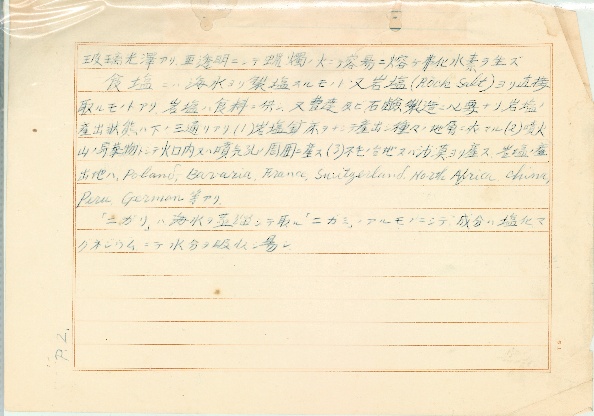 玻璃光澤アリ、亜透明ニシテ蝋燭ノ火ニテ容易ニ熔ケ弗化水素ヲ生ズ
食塩ニハ海水ヨリ製塩スルモノト又岩塩(Rock Salt)ヨリ直接
取ルモノトアリ、岩塩ハ食料ニ供シ、又曹達及ビ石鹸製造ニ必要ナリ岩塩ノ
産出状態ハ下ノ三通リアリ(1)岩塩鉱床ヲナシテ産出シ種々ノ地層ニ (2)噴火
山ノ昇華物トシテ火口内又ハ噴気孔ノ周囲ニ産ス(3)不毛ノ台地又ハ沙漠ヨリ産ス、岩塩ノ産
出地ハ、Poland, Bavaria, France, Switzerland, North Africa, China,
Peru German 等アリ
「ニガリ」ハ海水ヲ蒸溜シテ取ル「ニガミ」アルモノニシテ成分ハ塩化マ
グネシウムニテ水分ヲ吸収シ易シ
P.2.